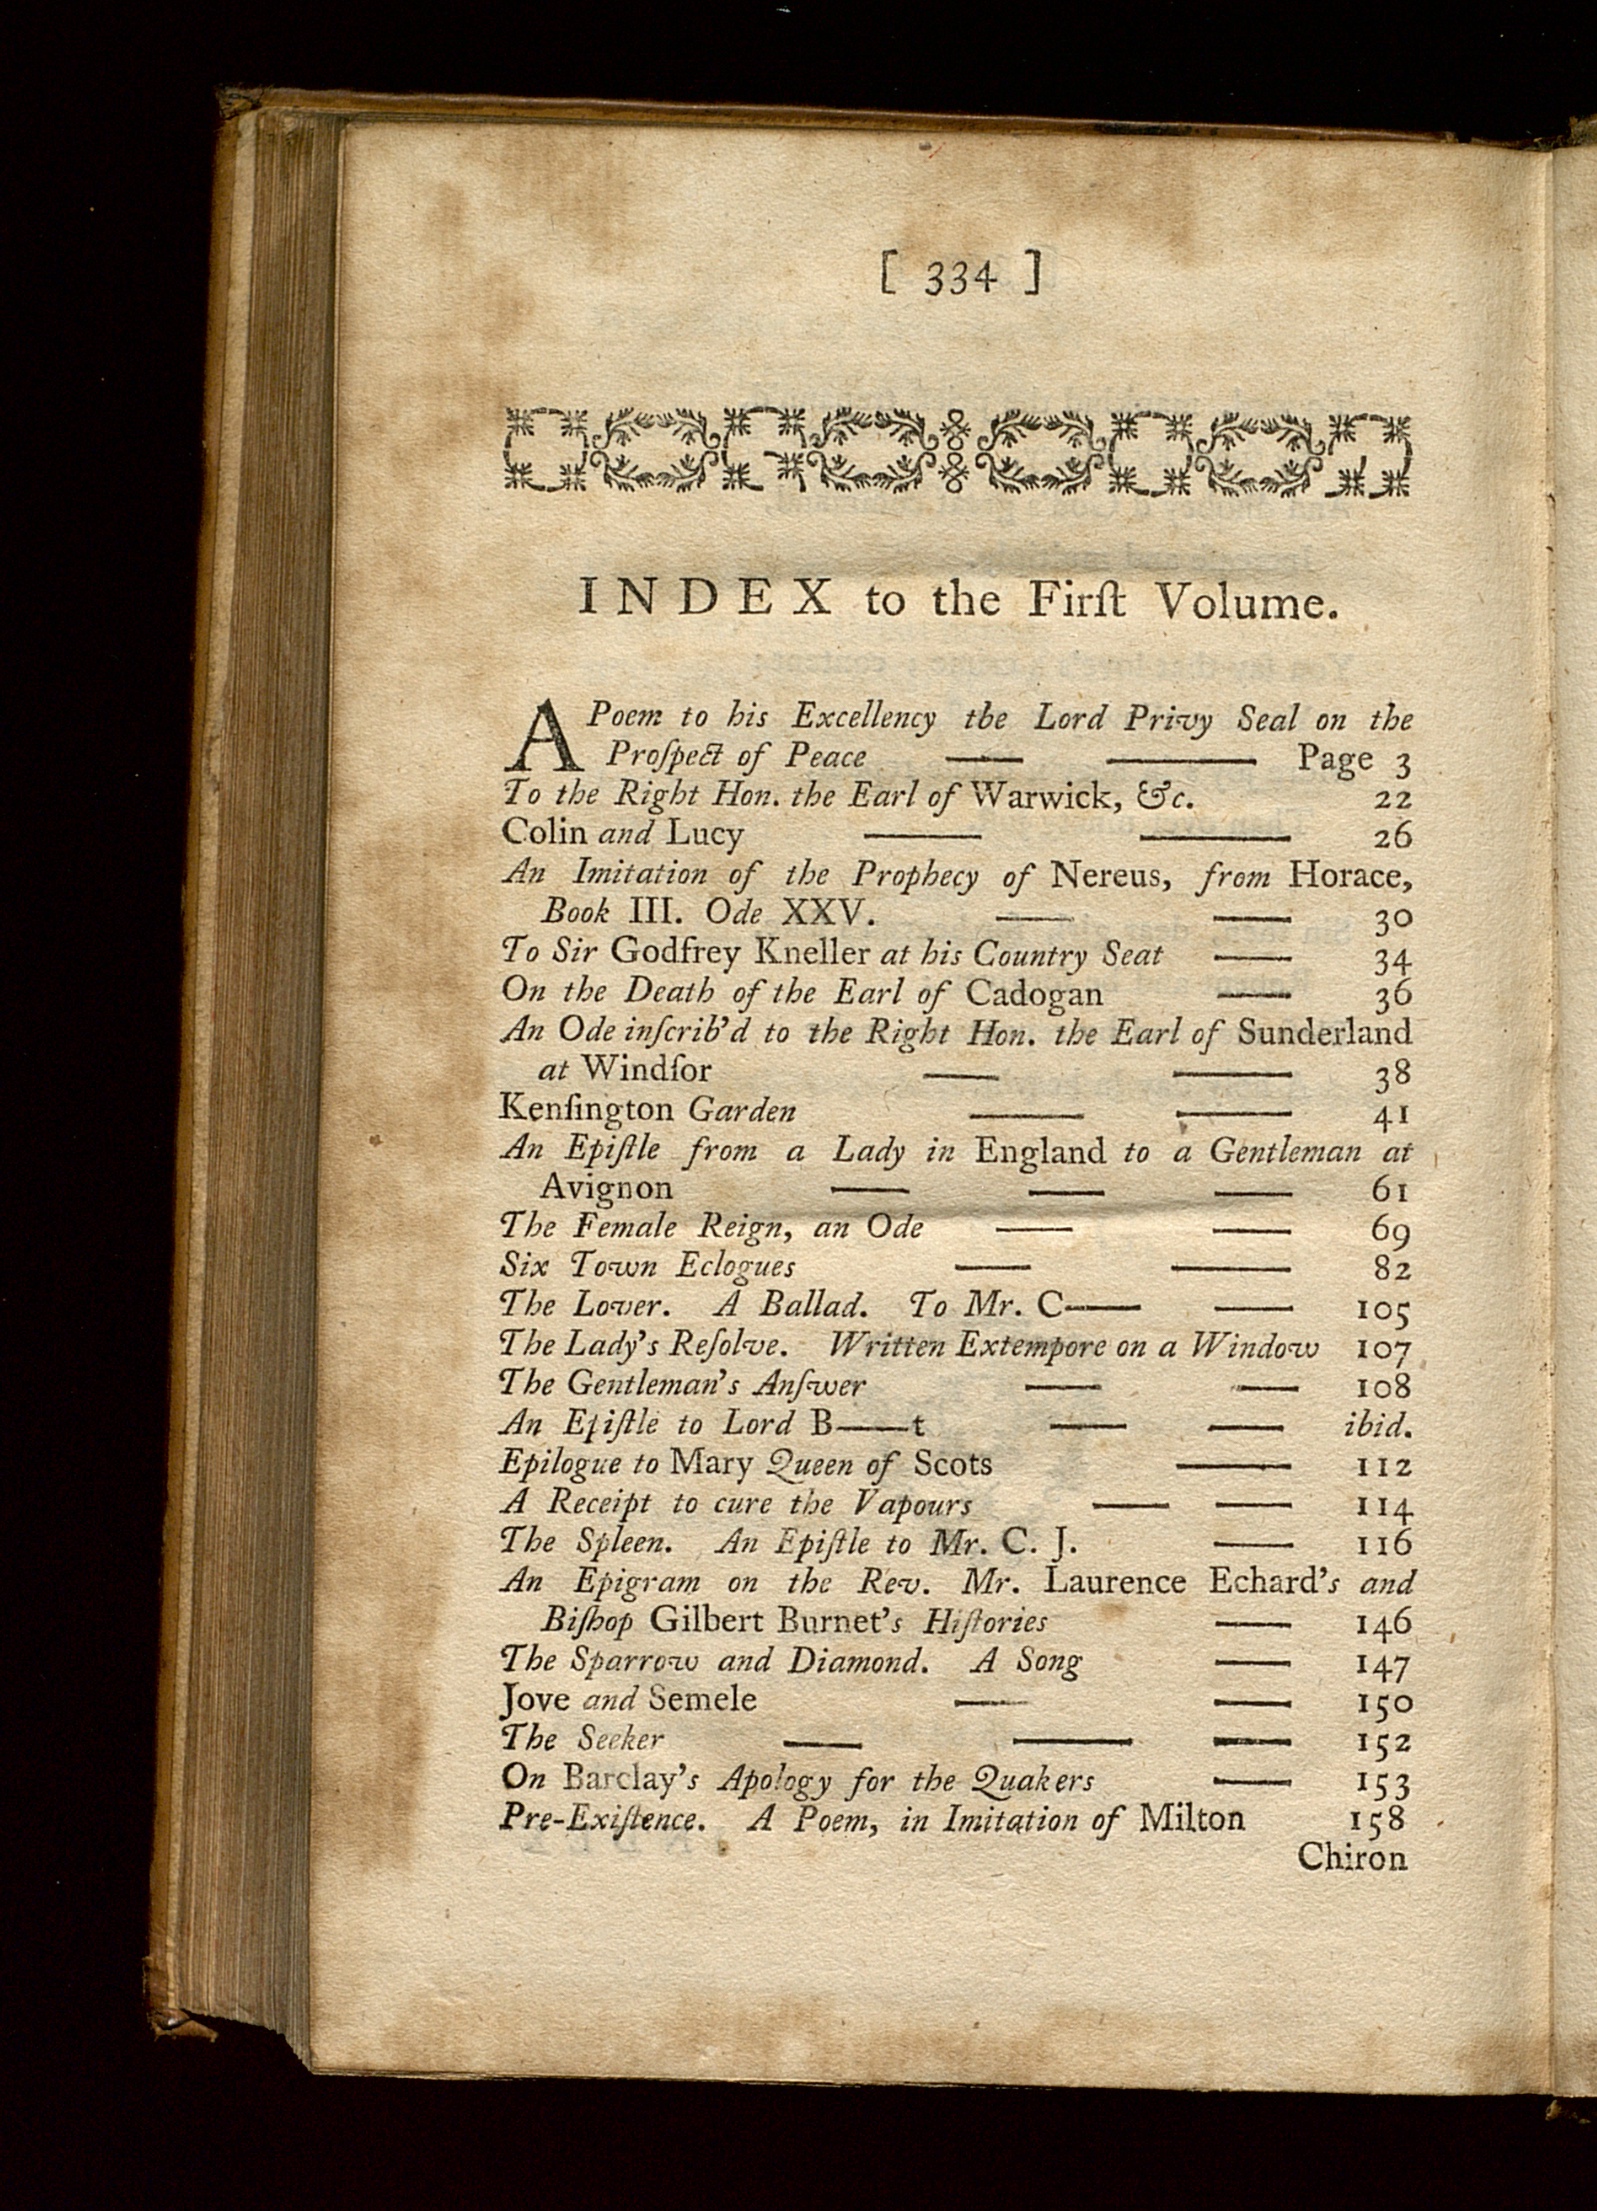 [ 334 ]
INDEX to the Firſt Volume.
A Poem to his Excellency the Lord Privy Seal on the
Proſpect of Peace —— —— Page 3
To the Right Hon. the Earl of Warwick, &c. 22
Colin and Lucy —— —— 26
An Imitation of the Prophecy of Nereus, from Horace,
Book III. Ode XXV. —— —— 30
To Sir Godfrey Kneller at his Country Seat —— 34
On the Death of the Earl of Cadogan —— 36
An Ode inſcrib'd to the Right Hon. the Earl of Sunderland
at Windſor —— —— 38
Kenſington Garden —— —— 41
An Epiſtle from a Lady in England to a Gentleman at
Avignon —— —— —— 61
The Female Reign, an Ode —— —— 69
Six Town Eclogues —— —— 82
The Lover. A Ballad. To Mr. C—— —— 105
The Lady's Reſolve. Written Extempore on a Window 107
The Gentleman's Anſwer —— —— 108
An Epiſtle to Lord B——t —— —— ibid.
Epilogue to Mary Queen of Scots —— 112
A Receipt to cure the Vapours —— —— 114
The Spleen. An Epiſtle to Mr. C. J. —— 116
An Epigram on the Rev. Mr. Laurence Echard's and
Biſhop Gilbert Burnet's Hiſtories —— 146
The Sparrow and Diamond. A Song —— 147
Jove and Semele —— —— 150
The Seeker —— —— —— 152
On Barclay's Apology for the Quakers —— 153
Pre-Exiſtence. A Poem, in Imitation of Milton 158
Chiron